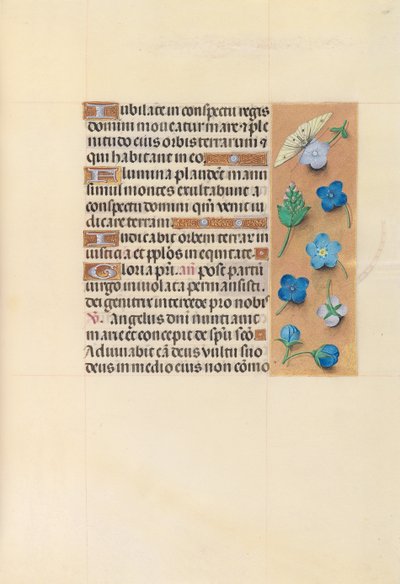 Iubilate in conspectu regis
domini moveatur mare & ple
nitudo eius orbis terrarum &
qui habitant in eo
Flumina plaudent manu
simul montes exultabunt a
conspectu domini qm̄ venit iu
dicare terram
Iudicabit orbem terrar̄ in
iusticia et pplōs in equitate.
Gloria pr̄i. añ Post partū
virgo inviolata permansisti.
dei genitrix intercede pro nobis
V. Angelus dn̄i nunciavit
marie et concepit de sp̄u scō
Adiuvabit eā deus vultu suo
deus in medio eius non cōmo